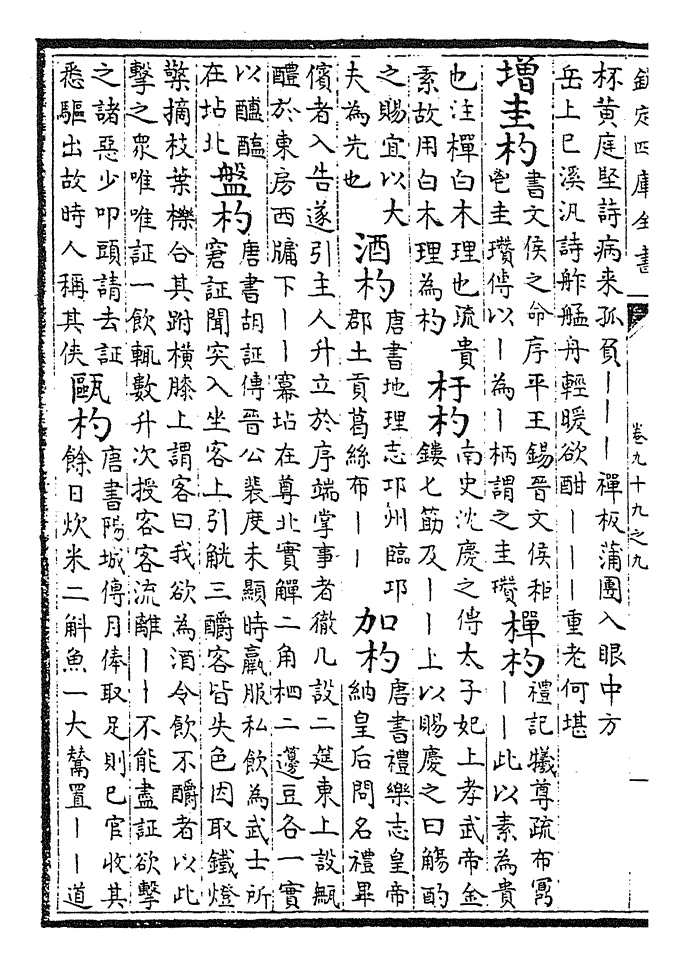 欽定四庫全書
卷九十九之九
一
杯黄庭堅詩病来孤負｜｜｜禪板蒲團入眼中方
岳上巳溪汎詩舴艋舟輕暖欲酣｜｜｜重老何堪
增圭杓
書文侯之命序平王錫晉文侯秬
鬯圭瓚傳以｜為｜柄謂之圭瓚
樿杓
禮記犧尊疏布鼏
｜｜此以素為貴
也注樿白木理也疏貴
素故用白木理為杓
杅杓
南史沈慶之傳太子妃上孝武帝金
鏤匕筯及｜｜上以賜慶之曰觴酌
之賜宜以大
夫為先也
酒杓
唐書地理志邛州臨邛
郡土貢葛絲布｜｜
加杓
唐書禮樂志皇帝
納皇后問名禮畢
儐者入告遂引主人升立於序端掌事者徹几設二筵東上設甒
醴於東房西牖下｜｜冪坫在尊北實觶二角柶二籩豆各一實
以醯醢
在坫北
盤杓
唐書胡証傳晉公裴度未顯時羸服私飲為武士所
窘証聞突入坐客上引觥三釂客皆失色因取鐵燈
檠摘枝葉櫟合其跗横膝上謂客曰我欲為酒令飲不釂者以此
擊之衆唯唯証一飲輒數升次授客客流離｜｜不能盡証欲擊
之諸惡少叩頭請去証
悉驅出故時人稱其俠
甌杓
唐書陽城傳月俸取足則已官收其
餘日炊米二斛魚一大鬵置｜｜道